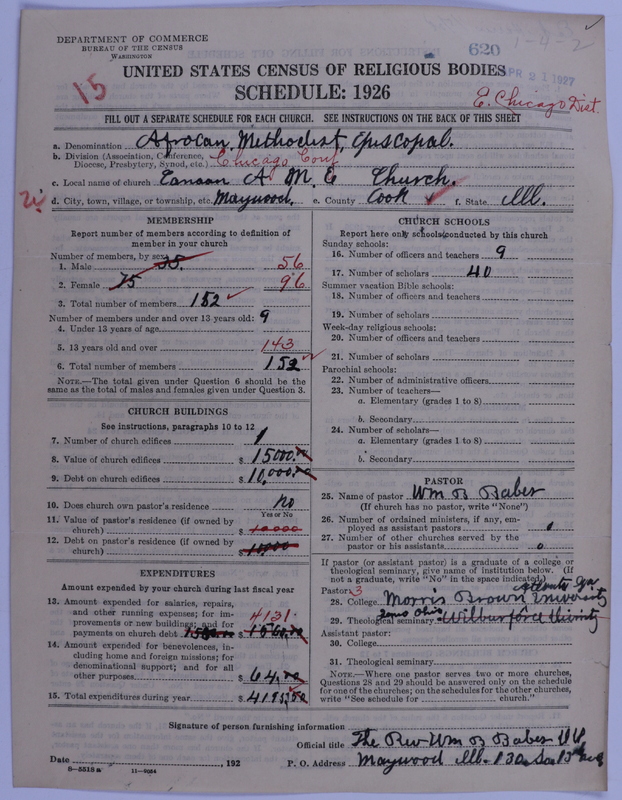 DEPARTMENT OF COMMERCE
BUREAU OF THE CENSUS
WASHINGTON
620
1-4-2
APR 21 1927
15
UNITED STATES CENSUS OF RELIGIOUS BODIES
SCHEDULE: 1926
E. Chicago Dist.
FILL OUT A SEPARATE SCHEDULE FOR EACH CHURCH. SEE INSTRUCTIONS ON THE BACK OF THIS SHEET
a. Denomination Afrocan Methodist Episcopal.
b. Division (Association, Conference, Diocese, Presbytery, Synod, etc.) Chicago Conf
c. Local name of church Canaan A M E Church.
d. City, town, village, or township, etc. Maywood, e. County Cook f. State Ill.
MEMBERSHIP
Report number of members according to definition of
member in your church
Number of members, by sex:
1. Male 56
2. Female 75 96
3. Total number of members 152
Number of members under and over 13 years old: 9
4. Under 13 years of age
5. 13 years old and over 143
6. Total number of members 152
NOTE.—The total given under Question 6 should be the
same as the total of males and females given under Question 3.
CHURCH BUILDINGS
See instructions, paragraphs 10 to 12
7. Number of church edifices 1
8. Value of church edifices $ 15000.00
9. Debt on church edifices $ 10,000.00
10. Does church own pastor's residence no
Yes or No
11. Value of pastor's residence (if owned by
church) $ 10000
12. Debt on pastor's residence (if owned by
church) $ 10000
EXPENDITURES
Amount expended by your church during last fiscal year
13. Amount expended for salaries, repairs,
and other running expenses; for improvements or new buildings; and for
payments on church debt $ 4131
14. Amount expended for benevolences, including home and foreign missions; for
denominational support; and for all
other purposes $ 64.00
15. Total expenditures during year $ 4195
CHURCH SCHOOLS
Report here only schools conducted by this church
Sunday schools:
16. Number of officers and teachers 9
17. Number of scholars 40
Summer vacation Bible schools:
18. Number of officers and teachers
19. Number of scholars
Week-day religious schools:
20. Number of officers and teachers
21. Number of scholars
Parochial schools:
22. Number of administrative officers
23. Number of teachers—
a. Elementary (grades 1 to 8)
b. Secondary
24. Number of scholars—
a. Elementary (grades 1 to 8)
b. Secondary
PASTOR
25. Name of pastor Wm B Baber
(If church has no pastor, write "None")
26. Number of ordained ministers, if any, employed as assistant pastors
27. Number of other churches served by the
pastor or his assistants 0
If pastor (or assistant pastor) is a graduate of a college or
theological seminary, give name of institution below. (If
not a graduate, write "No" in the space indicated.)
Pastor: 3 Atlanta Ga
28. College Morris Brown University
29. Theological seminary Wilberforce
Assistant pastor:
30. College
31. Theological seminary
NOTE.—Where one pastor serves two or more churches,
Questions 28 and 29 should be answered only on the schedule
for one of the churches; on the schedules for the other churches,
write "See schedule for church."
Signature of person furnishing information
Official title The Rev Wm B Baber
Date , 192 P. O. Address Maywood Ill.
8—5518 a 11—9064